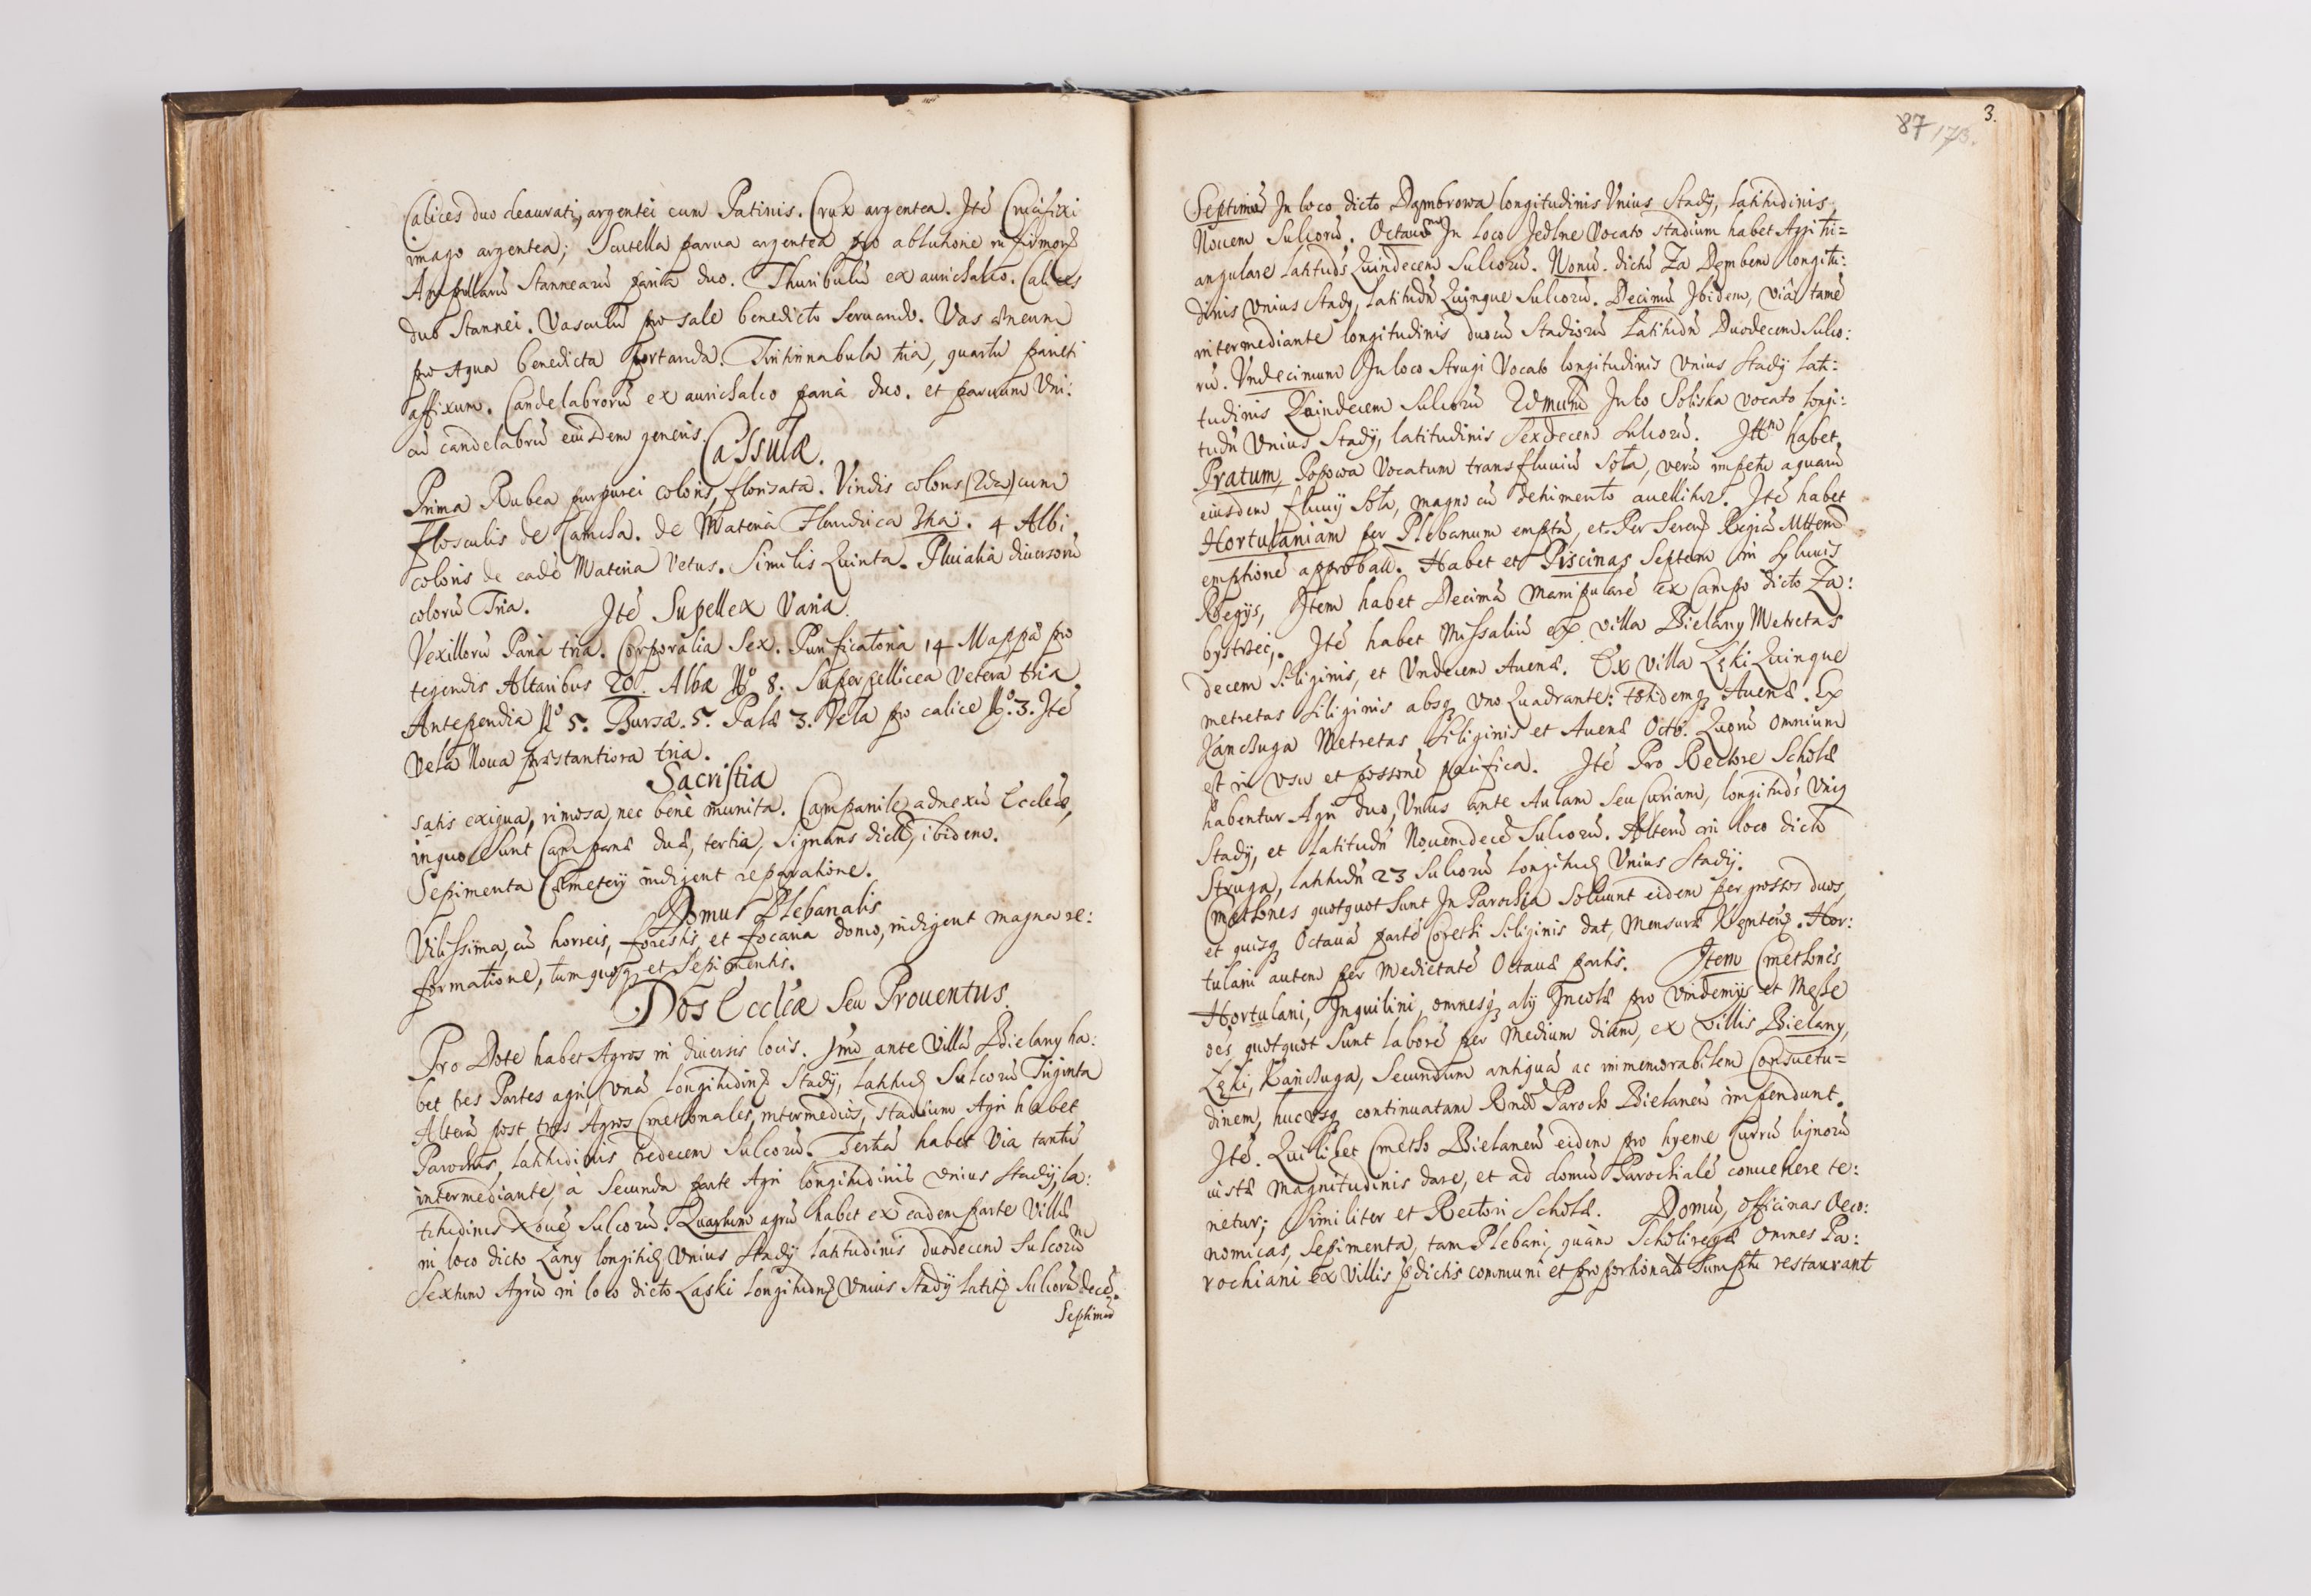 Calices duo deaurati, argentei cum Patinis. Crux argentea. Itē Crucifixi
imago argentea; Scutella parua argentea pro ablutione infirmorū
Ampullarū Stannearū paria duo. Thuribulū ex aurichalco. Calices
duo Stannei. Vasculū pro sale benedicto Seruando. Vas æneum
pro Aqua benedicta portanda. Tintinnabula tria, quartū parieti
affixum. Candelabrorū ex aurichalco paria duo. et paruum Vni:
cū candelabrū eiusdem generis.
Cassulæ.
Prima Rubea purpurei coloris, florisata. Viridis coloris (2da) cum
flosculis de Camcha. de Materia Flandrica 3tia. 4 Albi
coloris de eadē Materia Vetus. Similis Quinta. Pluialia diuersorū
colorū Tria. Itē Supellex Varia.
Vexillorū Paria tria. Corporalia Sex. Purificatoria 14 Mappæ pro
tegendis Altaribus 20. Albæ No 8. Superpellicea Vetera tria
Antependia No 5. Bursæ. 5. Palæ 3. Vela pro calice No. 3. Itē
Vela Noua præstantiora tria.
Sacristia
satis exigua, rimosa, nec bene munita. Campanile adnexū Eccleæ,
in quo Sunt Campanæ duæ, tertia, Signans dictæ, ibidem.
Sepimenta Cæmeterÿ indigent reparatione.
Domus Plebanalis
Vilissima, cū horreis, forestis, et focaria domo, indigent magna re:
formatione, tum quoq et Sepimentis.
Dos Eccleæ Seu Prouentus.
Pro Dote habet Agros in diuersis locis. Imo ante Villā Bielany ha:
bet tres Partes agri, Vnā longitudinē Stadÿ, latitud Sulcorū Triginta
Alterā post tres Agros Cmethonales, intermedios, stadium Agri habet
Parochus, latitudinis tredecem Sulcorū. Tertiā habet Via tantū
intermediante, à Secunda parte Agri longitudinis vnius Stadÿ, la:
titudinis Nouē Sulcorū. Quartum agrū habet ex eadem parte Villæ
in loco dicto Łany longitud Vnius Stadÿ latitudinis duodecem Sulcorū
Sextum Agrū in loco dicto Łaski longitudinē Vnius Stadÿ latit Sulcorū decē.
Septimū
87 173.
3.
Septimū In loco dicto Dąmbrowa longitudinis Vnius Stadÿ, latitudinis
Nouem Sulcorū. Octauū In loco Jedlne Vocato stadium habet Agri tri=
angulare latitud Quindecem Sulcorū. Nonū. dictū Za Dembem longitu:
dinis vnius Stadÿ, latitudī Quinque Sulcorū. Decimū Ibidem, viâ tamē
intermediante longitudinis duorū Stadiorū latitudī Duodecem Sulco:
rū. Vndecimum In loco Strugi Vocato longitudinis vnius Stadÿ lati:
tudinis Quindecem Sulcorū 12mum In lo Soliska vocato longi:
tudī Vnius Stadÿ, latitudinis Sexdecem Sulcorū. Item habet
Pratum, Popowa Vocatum trans fluuiū Soła, verū impetu aquarū
eiusdem fluuÿ Soła, magno cū detrimento auellitur. Itē habet
Hortulaniam per Plebanum emptā, et Per Seren Regiā Mttem
emptionē approbatā. Habet et Piscinas Septem in Syluis
Regÿs, Item habet Decimā Manipularē ex Campo dicto Za:
bystrzei,. Itē habet Missaliū ex villa Bielany Metretas
decem Siliginis, et Vndecem Auenæ. Ex villa Łęki Quinque
metretas Siliginis absq vno Quadrante: totidemq Auenæ. Ex
Kanczuga Metretas Siliginis et Auenæ Octo. Quorū omnium
est in vsu et possone pacifica. Itē Pro Rectore Scholæ
habentur Agri duo, Vnus ante Aulam Seu Curiam, longitud Vniq
Stadÿ, et Latitudī Nouemdecē Sulcorū. Alterū in loco dicto
Struga, latitudī 23 Sulcorū longitud Vnius Stadÿ.
Cmethones quotquot Sunt In Parochia Soluunt eidem per grossos duos,
et quisq Octauā partē Corethi Siliginis dat, Mensuræ Kęnteñ. Hor:
tulani autem per Medietatē Octauæ partis. Item Cmethones
Hortulani, Inquilini, omnesq alÿ Incolæ pro vindemÿs et Messe
oēs quotquot Sunt laborē per Medium diem, ex Villis Bielany,
Łęki, Kańczuga, Secundum antiquā ac immemorabilem Consuetu=
dinem, hucusq continuatam Rndo Parocho Bielaneñ impendunt.
Itē. Quilibet Cmetho Bielaneñ eidem pro hyeme Currū lignorū
iustæ Magnitudinis dare, et ad domū Parochialē conuehere te:
netur; Similiter et Rectori Scholæ. Domū, officinas Oeco:
nomicas, Sepimenta, tam Plebani, quàm Scholiregæ omnes Pa:
rochiani ex Villis pdictis communi et proportionato Sumptu restaurant